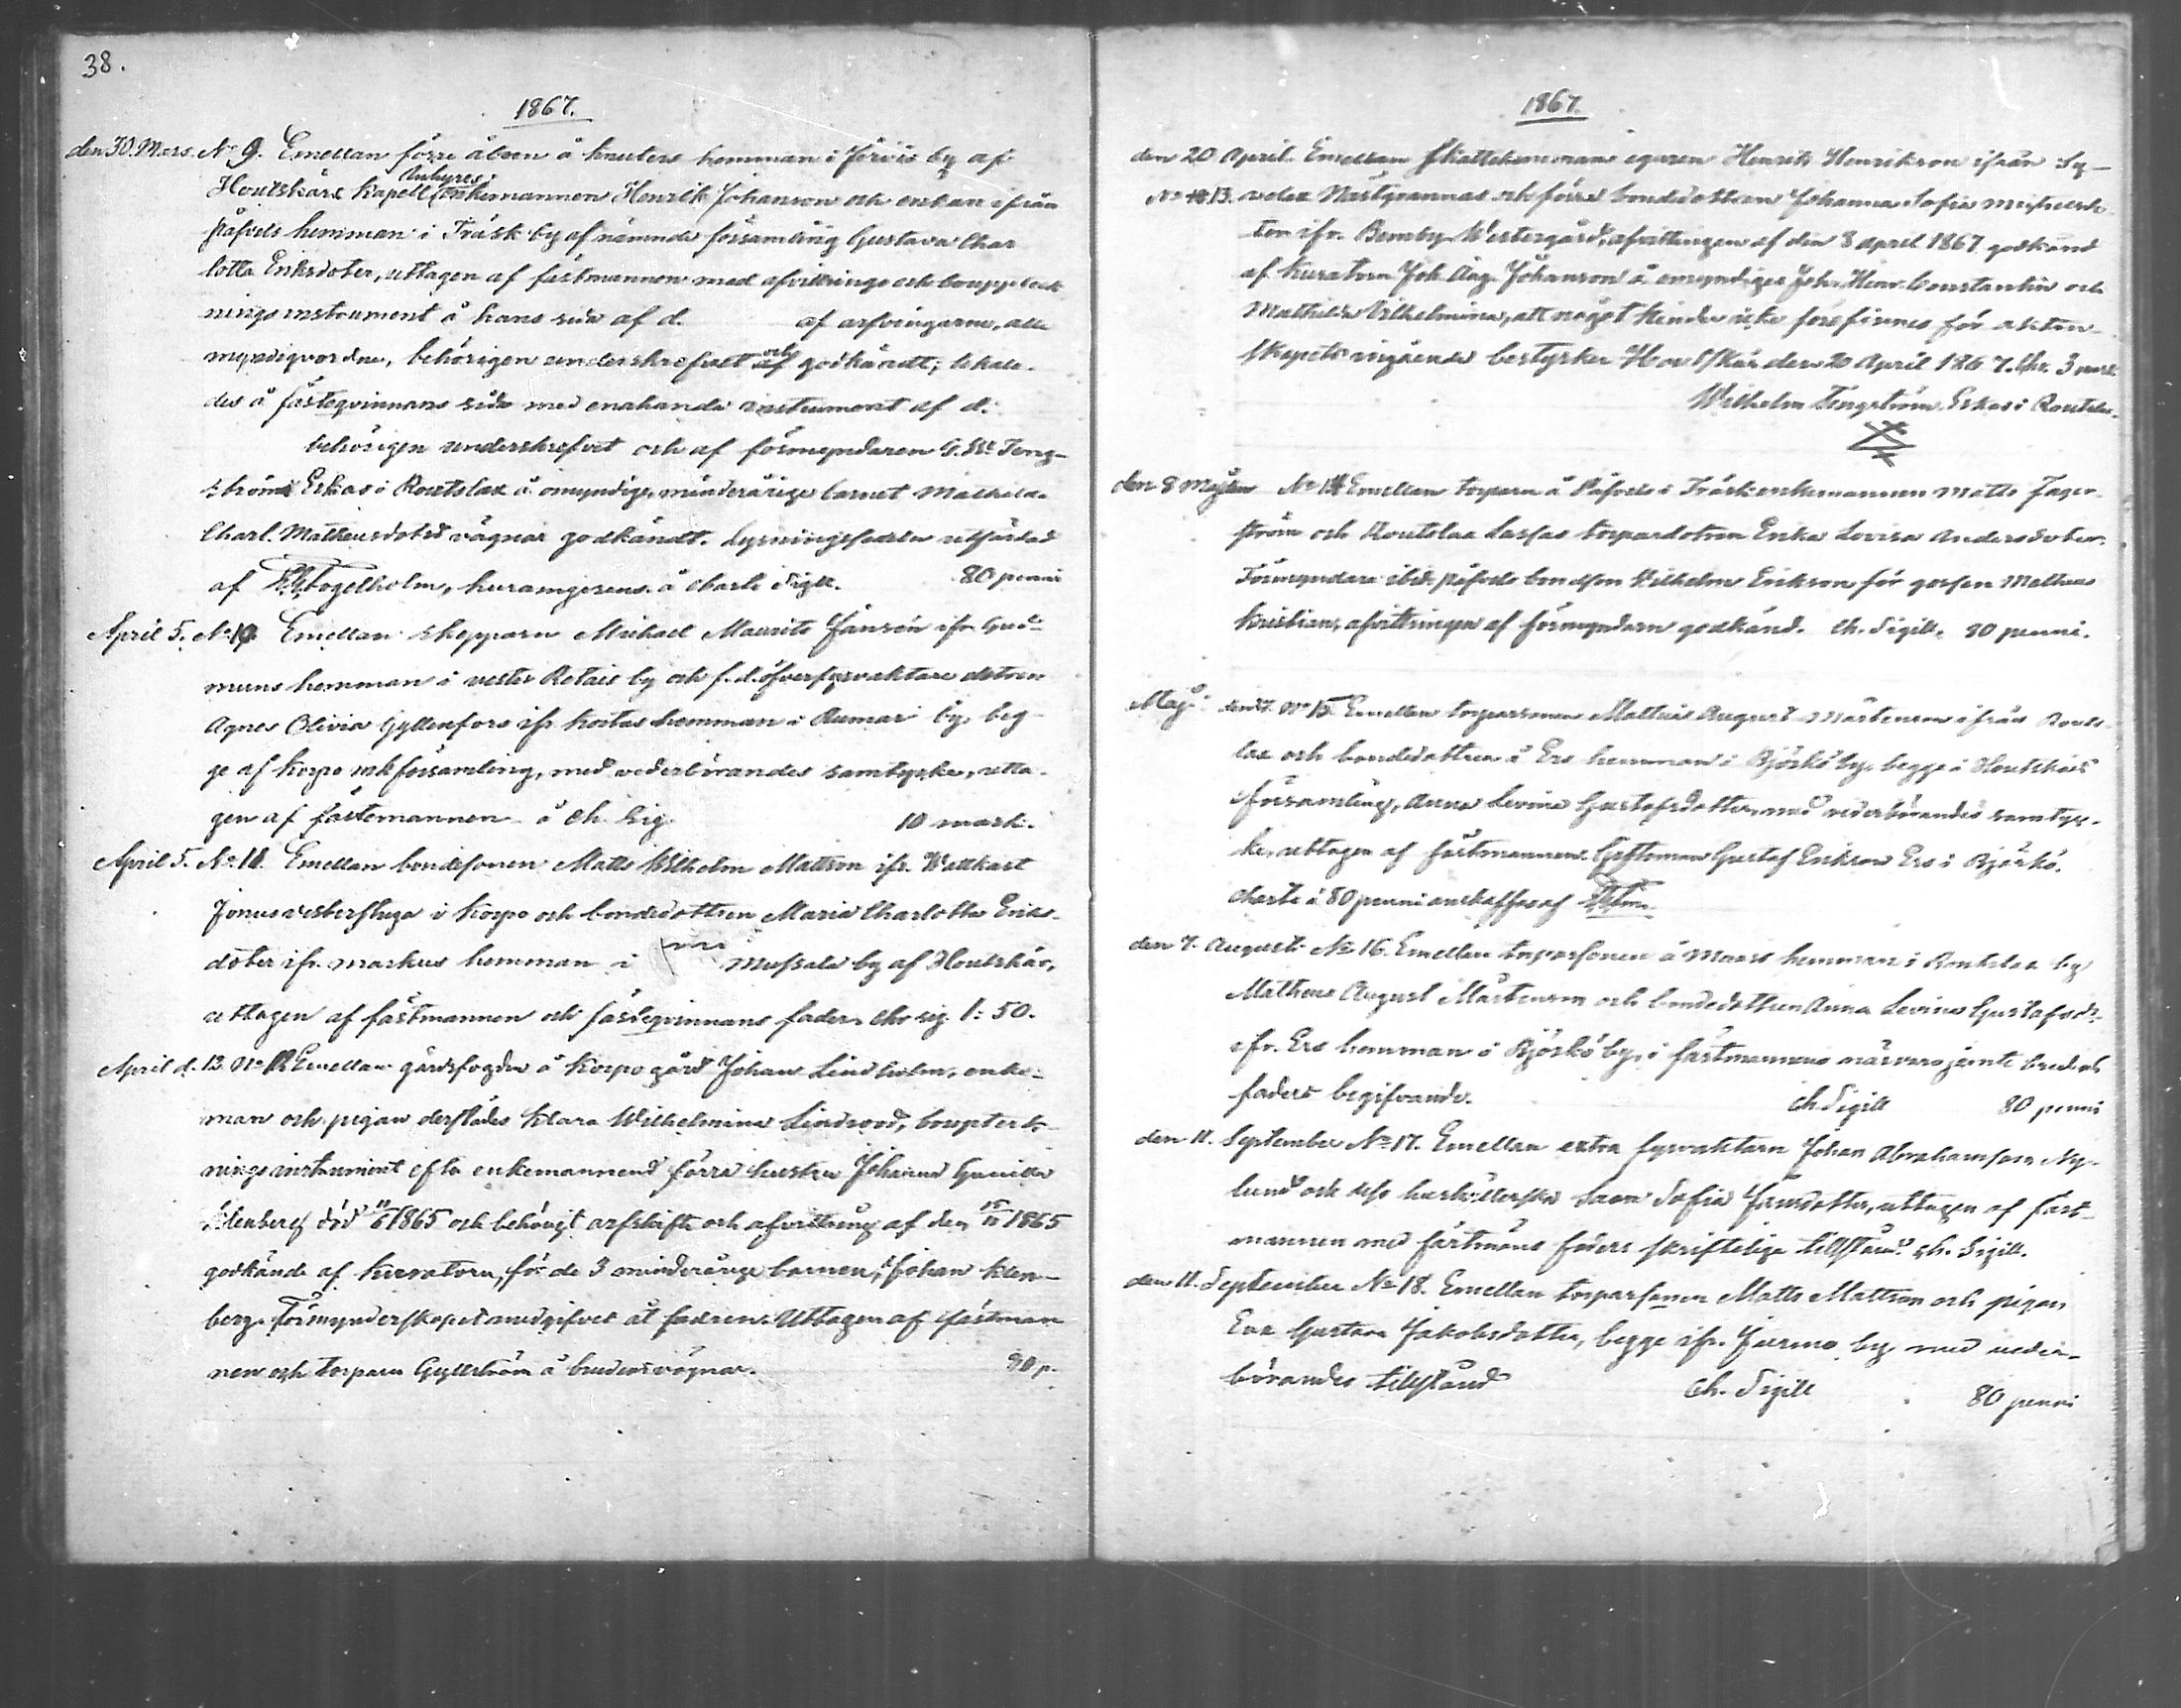 38.
1867.
den 30. Mars. No 9. Emellan förre åboen å Knuters hemman i Jervis by af
Inhyses
Houtskärs Kapell enkemannen Henrik Johanson och enkan ifrån
påfvels hemman i Träsk by af nämnde församling Gustava Char
lotta Eriksdoter, uttagen af fästmannen med afvittrings och bouppteck
nings instrument å hans sida af d. af arfvingarne, alla
myndigvordne, behörigen underskrefvet och godkändt; likale-
des å fästeqvinnans sida med enahanda instrument af d.
behörigen underskrefvet och af förmyndaren G. W. Teng-
ström Erkas i Routslax å omyndiga, minderåriga barnet Mathilda
Charl. Matheusdoters vägnar godkändt. Lysningssedeln utfärdad
af Fogelholm, å Charta Sigill. 80 penni
April 5. No 10. Emellan skepparn Mickael Maurits Jansén ifr. Gud-
muns hemman i vester Retais by och f. d. öfverfyrvaktare dotren
Agnes Olivia Gyllenfors ifr. Kostas hemman i Rumar by, beg-
ge af Korpo mkförsamling, med vederbörandes samtycke, utta-
gen af fästemannen å Ch. Sig. 10 mark.
April 5. No 11. Emellan bondesonen Matts Wilhelm Mattson ifr. Wattkast
Jonus vesterstuga i Korpo och bondedottren Maria Charlotta Eriks-
doter ifr. markus hemman i Mussala by af Houtskär,
uttagen af fästmannen och fästeqvinnans fader. Cha sig. 1: 50.
April d. 12. No 12 Emellan gårdsfogden å Korpo gård Johan Lindholm, enke-
man och pigan derstädes Klara Wilhelmina Lindroos, bouppteck-
nings instrument efter enkemannens förra hustru Johanna Gunilla
Klenberg död 11/6 1865 och behörigt arfskifte och afvittring af den 15/11 1865
godkände af Kuratorn, för de 3 minderåriga barnen, Johan Klen-
berg. Förmynderskapet medgifvet åt fadren. Uttagen af fästman
nen och torparn Gyllström å brudens vägnar. 80 p.
1867.
den 20 April. Emellan Skattehemmans egaren Henrik Henrikson ifrån Sy-
No 13. velax Nästgvannas och förra bondedottren Johanna Sofia Michelsdo
ter ifr. Benby Westergård, afvittringen af den 3 april 1867 godkänd
af Kuratorn Joh. Aug. Johanson å omyndiga Joh. Henr. Constantin och
Mathilda Vilhelmina, att något hinder icke förefinnes för äkten-
skapets ingående bestyrker Houtskär den 20 April 1867. Chr. 3 mark
Wilhelm Tengström. Erkas i Routslax.
den 8 Maj No 14 Emellan torparn å Påfvels i Träsk enkemannen Matts Jager-
ström och Routslax Lassas torpardotren Erika Lovisa Andersdoter.
Förmyndare ibid. påfvels bondson Wilhelm Erikson för gossen Matheus
Kristian, afvittringen af förmyndarn godkänd. Ch. Sigill. 80 penni.
Maj No 15. Emellan torparsonen Matheus August Mårtenson ifrån Routs-
lax och bondedottren å Ers hemman i Björkö by, begge i Houtskärs
församling, Anna Levina Gustafsdotter, med vederbörandes samtyc-
ke, uttagen af fästmannen. Giftoman Gustaf Erikson Ers i Björkö.
Charta á 80 penni anskaffas af
den 7. Augusti No 16. Emellan torparsonen å Maars hemman i Routslax by
Matheus August Mårtenson och bondedottren Anna Levina Gustafsdr.
ifr. Ers hemman i Björkö by, i fästmannens närvaro jemte brudens
faders begifvande. Ch Sigill 80 penni
den 11. September No 17. Emellan extra fyrvaktarn Johan Abrahamson Ny-
lund och dess hushållerska Sofia Jansdotter, uttagen af fäst-
mannen med fästmöns faders skriftliga tillstånd. Ch. Sigill.
den 11. September No 18. Emellan torparsonen Matts Mattson och pigan
Eva Gustava Jakobsdotter, begge ifr. Jurmo by med veder-
börandes tillstånd Ch. Sigill 80 penni